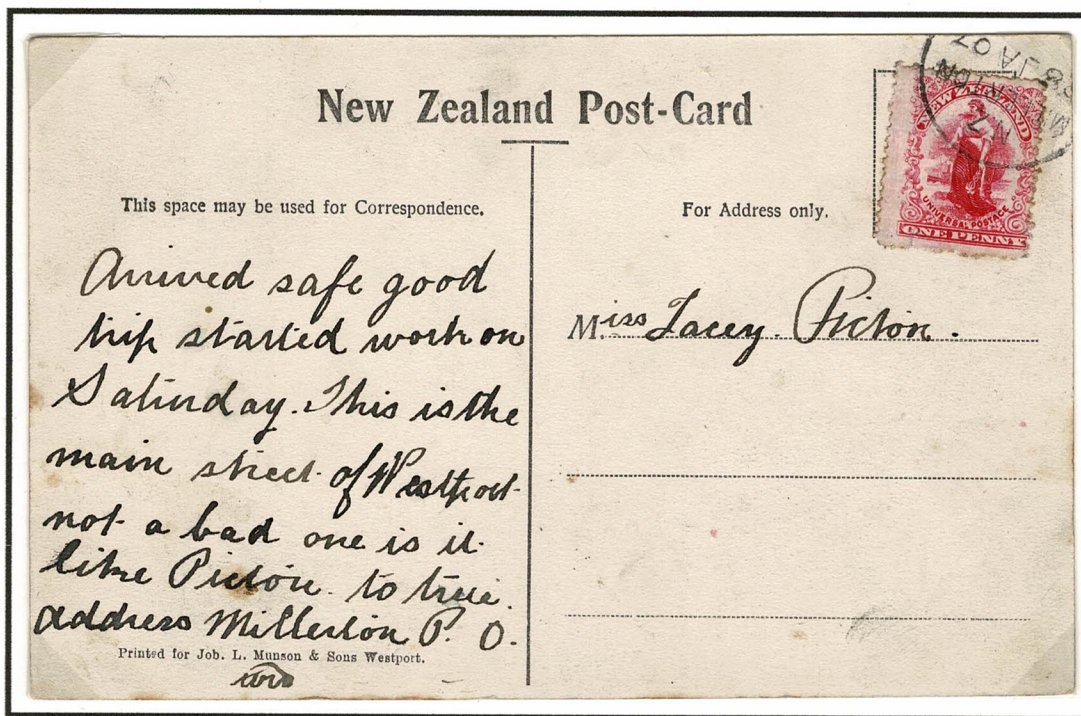 New Zealand Post-Card
This space may be used for Correspondence.
Arrived safe good
trip started work on
Saturday. This is the
main street of Westport
not a bad one is it
like Picton to true.
address Millerton P. O.
Printed for Job. L. Munson & Sons Westport.
For Address only.
Miss Lacey. Picton.
8 JA 07
MILLERTON
N Z
NEW ZEALAND
UNIVERSAL POSTAGE
ONE PENNY